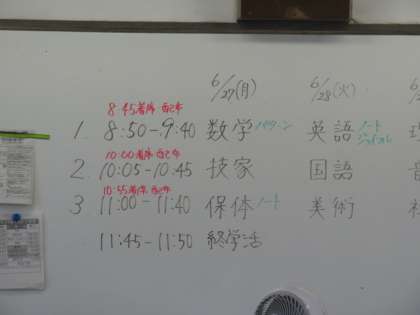 6/27(月) 6/28(火)
8:45着席 配布
1. 8:50-9:40 数学 パターン 英語 ノート
2. 10:05-10:45 技家 国語
10:00着席 配布
10:55着席 配布
3 11:00-11:40 保体 ノート 美術
11:45-11:50 終学活